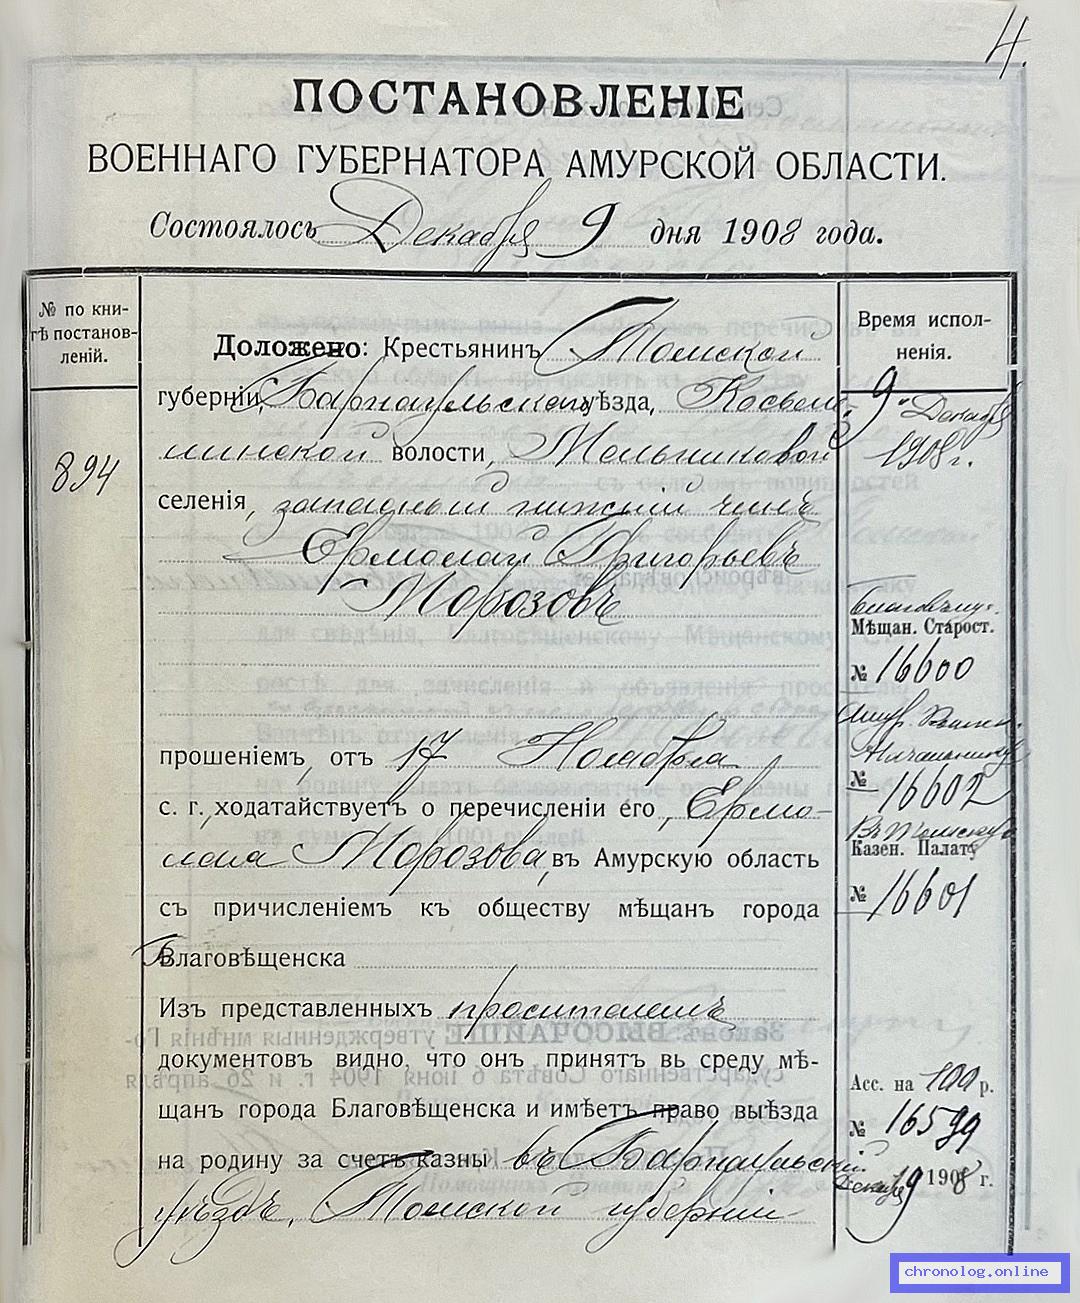 4.
ПОСТАНОВЛЕНІЕ
ВОЕННАГО ГУБЕРНАТОРА АМУРСКОЙ ОБЛАСТИ.
Состоялось Декабря 9 дня 1908 года.
№ по кни-
гѣ постанов-
леній.
894
Доложено: Крестьянинъ Томской
губерніи, Барнаульскаго уѣзда, Косьми-
минской волости, Мельниковой
селенія, запасный нижній чинъ
Ермолай Григорьевъ
Морозовъ
прошеніемъ, отъ 17 Ноября
с. г., ходатайствуетъ о перечисленіи его, Ермо-
лая Морозова, въ Амурскую область
съ причисленіемъ къ обществу мѣщанъ города
Благовѣщенска
Изъ представленныхъ просителемъ
документовъ видно, что онъ принятъ вь среду мѣ-
щанъ города Благовѣщенска и имѣетъ право выѣзда
на родину за счетъ казны въ Барнаульскій
уѣздъ, Томской губерніи
Время испол-
ненія.
9 Декабря
1908 г.
Благовѣщ.
Мѣщан. Старост.
№ 16600
Амур. Воинск.
Начальнику
№ 16602
Въ Томскую
Казен. Палату
№ 16601
Асс. на 100 р.
№ 16599
Декабря 9 1908 г.
chronolog.online